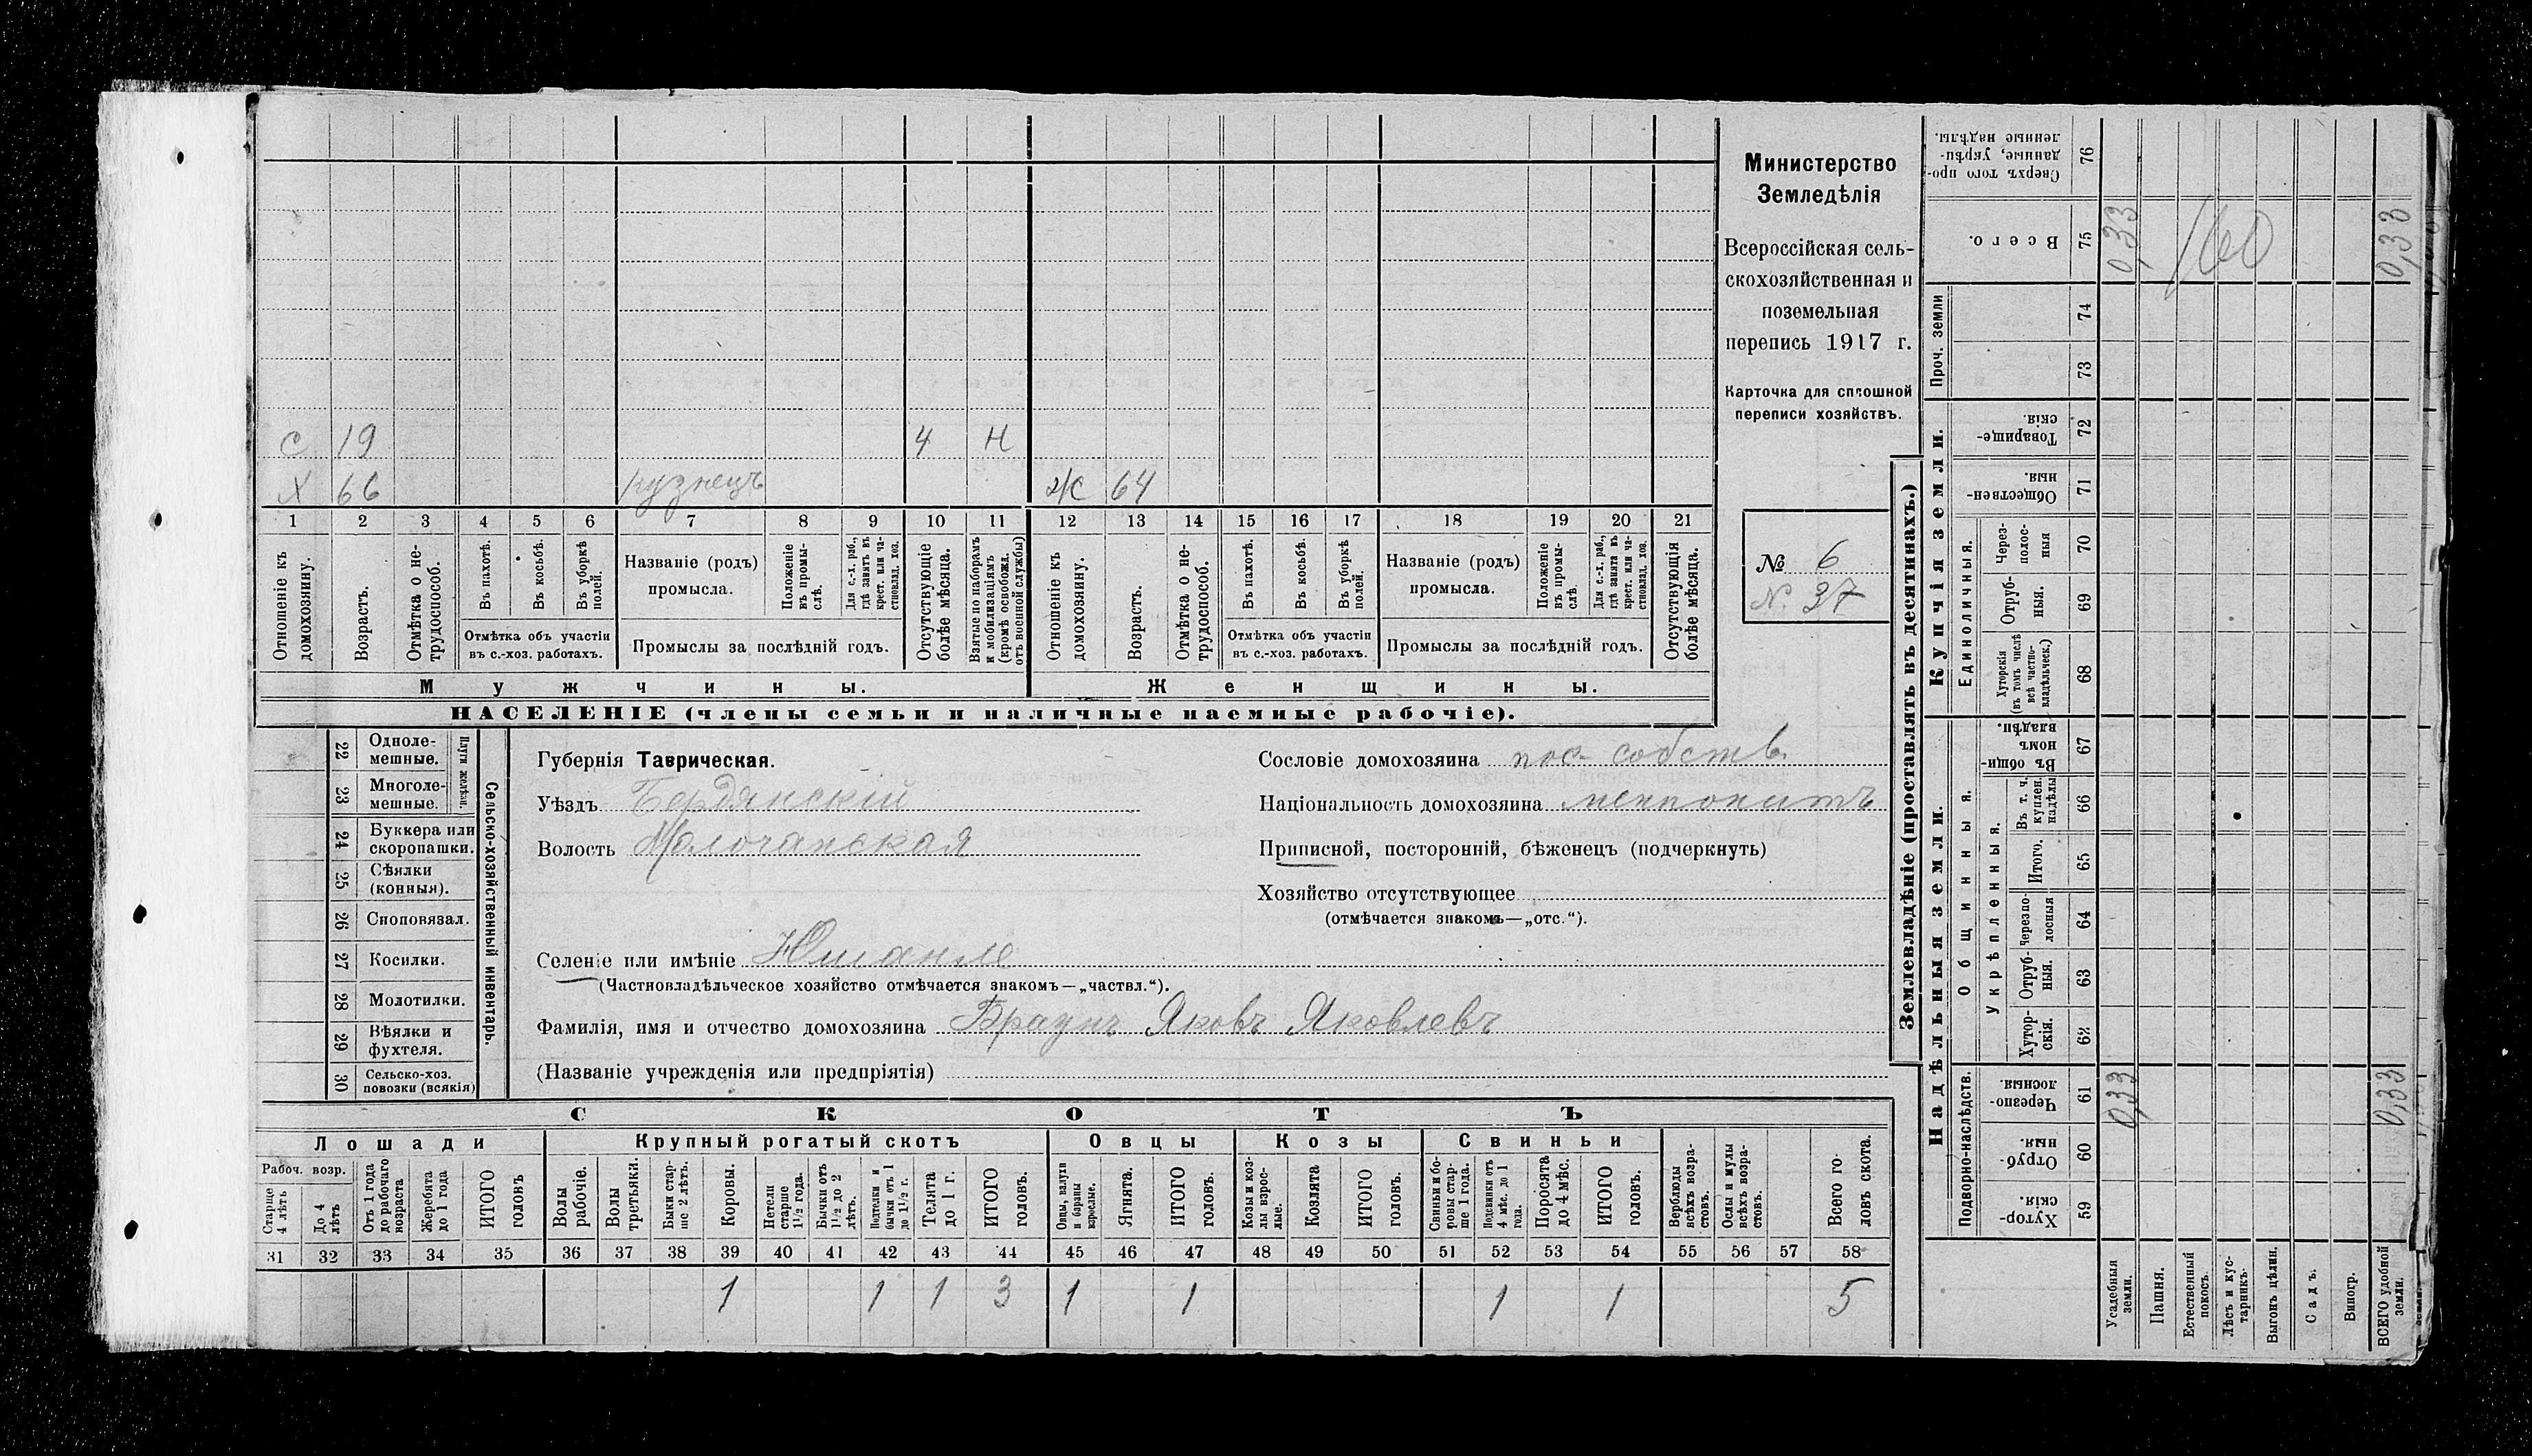 С 19 4 Н
Х 66 кузнецъ Ж 64
1 2 3 4 5 6 7 8 9 10 11 12 13 14 15 16 17 18 19 20 21
Отношеніе къ домохозяину.
Возрастъ.
Отмѣтка о не-трудоспособ.
Въ пахотѣ.
Въ косьбѣ.
Въ уборкѣ полей.
Отмѣтка объ участіи
въ с.-хоз. работахъ.
Названіе (родъ)
промысла.
Положеніе въ промы-слѣ.
Для с.-х. раб., гдѣ занятъ въ крест. или ча-стновлад. хоз.
Промыслы за послѣдній годъ.
Отсутствующіе болѣе мѣсяца.
Взятые по наборамъ и мобилизаціямъ (кромѣ освобожд. отъ военной службы)
Отношеніе къ домохозяину.
Возрастъ.
Отмѣтка о не-трудоспособ.
Въ пахотѣ.
Въ косьбѣ.
Въ уборкѣ полей.
Отмѣтка объ участіи
въ с.-хоз. работахъ.
Названіе (родъ)
промысла.
Положеніе въ промы-слѣ.
Для с.-х. раб., гдѣ занята въ крест. или ча-стновлад. хоз.
Промыслы за послѣдній годъ.
Отсутствующія болѣе мѣсяца.
Мужчины.
Женщины.
НАСЕЛЕНІЕ (члены семьи и наличные наемные рабочіе).
Министерство
Земледѣлія
Всероссійская сель-
скохозяйственная и
поземельная
перепись 1917 г.
Карточка для сплошной
переписи хозяйствъ.
№ 6
N. 37
22 Одноле-мешные.
23 Многоле-мешные.
Плуги желѣзн.
24 Буккера или скоропашки.
25 Сѣялки (конныя).
26 Сноповязал.
27 Косилки.
28 Молотилки.
29 Вѣялки и фухтеля.
30 Сельско-хоз. повозки (всякія)
Сельско-хозяйственный инвентарь.
Губернія Таврическая.
Уѣздъ Бердянскій
Волость Молочанская
Сословіе домохозяина пос. собств.
Національность домохозяина меннонитъ
Приписной, посторонній, бѣженецъ (подчеркнуть)
Хозяйство отсутствующее
(отмѣчается знакомъ—„отс.“).
Селеніе или имѣніе Юшанле
(Частновладѣльческое хозяйство отмѣчается знакомъ—„частвл.“).
Фамилія, имя и отчество домохозяина Браунъ Яковъ Яковлевъ
(Названіе учрежденія или предпріятія)
СКОТЪ
Лошади
Крупный рогатый скотъ
Овцы
Козы
Свиньи
Рабоч. возр.
Старше 4 лѣтъ
До 4 лѣтъ
Отъ 1 года до рабочаго возраста
Жеребята до 1 года
ИТОГО головъ
Волы рабочіе.
Волы третьяки.
Быки стар-ше 2 лѣтъ.
Коровы.
Нетели старше 1½ года.
Бычки отъ 1½ до 2 лѣтъ.
Подтелки и бычки отъ 1 до 1½ г.
Телята до 1 г.
ИТОГО головъ.
Овцы, валухи и бараны взрослые.
Ягнята.
ИТОГО головъ.
Козы и коз-лы взрос-лые.
Козлята
ИТОГО головъ.
Свиньи и бо-ровы стар-ше 1 года.
Подсвинки отъ 4 мѣс. до 1 года.
Поросята до 4 мѣс.
ИТОГО головъ.
Верблюды всѣхъ возра-стовъ.
Ослы и мулы всѣхъ возра-стовъ.
Всего го-ловъ скота.
31 32 33 34 35 36 37 38 39 40 41 42 43 44 45 46 47 48 49 50 51 52 53 54 55 56 57 58
1 1 1 3 1 1 1 1 5
Землевладѣніе (проставлять въ десятинахъ.)
Надѣльныя земли.
Купчія земли.
Сверхъ того про-данные, укрѣп-ленные надѣлы. 76
Всего. 75 0,33 160 0,33
Проч. земли
74
73
Товарище-скія. 72
Обществен-ныя. 71
Единоличныя.
Через-полос-ныя 70
Отруб-ныя. 69
Хуторскія (въ томъ числѣ всѣ частно-владѣльческ.) 68
Общинныя.
Въ общи-номъ владѣн. 67
Укрѣпленныя.
Въ т. ч. куплен. надѣлы 66
Итого. 65
Черезпо-лосныя 64
Отруб-ныя. 63
Хутор-скія. 62
Подворно-наслѣдств.
Черезпо-лосныя. 61 0,33 0,33
Отруб-ныя. 60
Хутор-скія. 59
Усадебныя земли.
Пашня.
Естественный покосъ.
Лѣсъ и кус-тарникъ.
Выгонъ цѣлин.
Садъ.
Виногр.
ВСЕГО удобной земли.